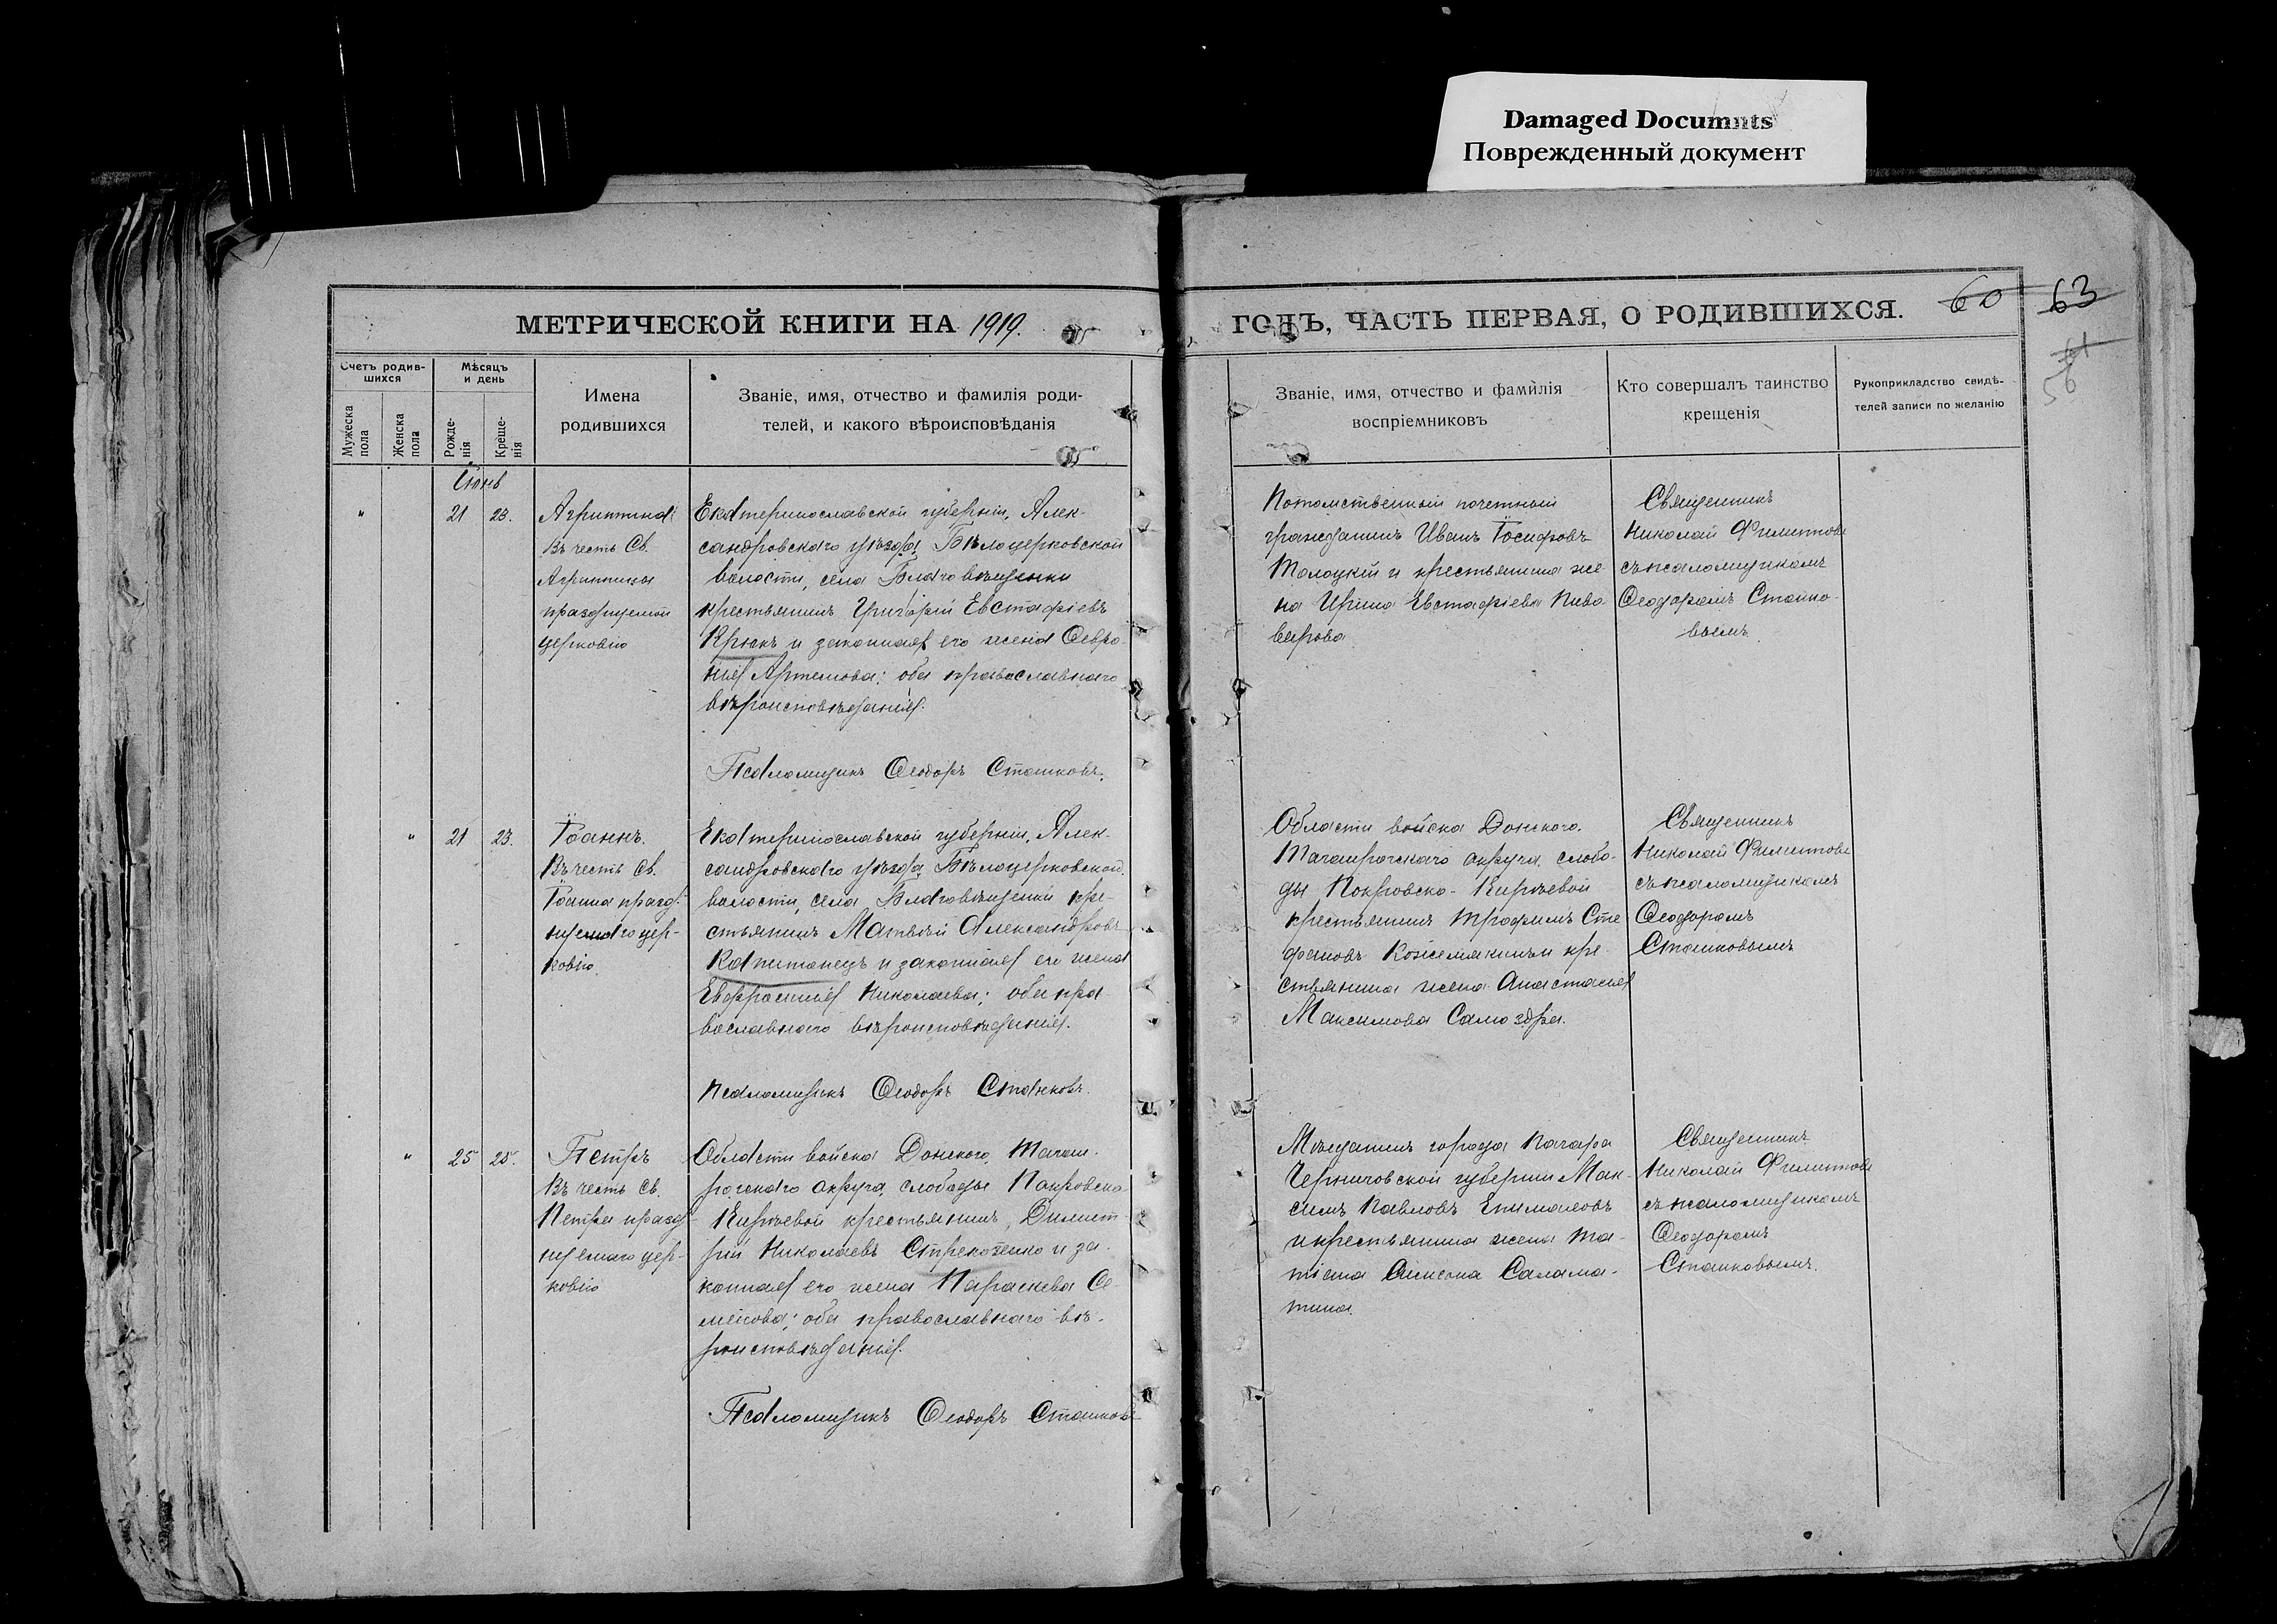 Damaged Documnts
Поврежденный документ
МЕТРИЧЕСКОЙ КНИГИ НА 1919.
ГОДЪ, ЧАСТЬ ПЕРВАЯ, О РОДИВШИХСЯ.
60 63
61
56
Счетъ родив-
шихся
Мужеска
пола
Женска
пола
Мѣсяцъ
и день
Рожде-
нія
Креще-
нія
Имена
родившихся
Званіе, имя, отчество и фамилія роди-
телей, и какого вѣроисповѣданія
Званіе, имя, отчество и фамилія
воспріемниковъ
Кто совершалъ таинство
крещенія
Рукоприкладство свидѣ-
телей записи по желанію
Іюнь
" 21 23.
Агриппина
Въ честь Св.
Агриппины
празднуемой
церковію
Екатеринославской губерніи, Алек-
сандровскаго уѣзда, Бѣлоцерковской
волости, села Благовѣщенки
крестьянинъ Григорій Евстафіевъ
Крюкъ и законная его жена Февро-
нія Артемова; оба православнаго
вѣроисповѣданія.
Псаломщикъ Ѳеодоръ Сташковъ.
Потомственный почетный
гражданинъ Иванъ Іосифовъ
Толоцкій и крестьянина же-
на Ирина Евстафіева Пиво-
варова
Священникъ
Николай Филипповъ
съ псаломщикомъ
Ѳеодоромъ Сташко-
вымъ.
" 21 23.
Іоаннъ.
Въ честь Св.
Іоанна празд-
нуемаго цер-
ковію.
Екатеринославской губерніи, Алек-
сандровскаго уѣзда Бѣлоцерковской
волости, села Благовѣщенки кре-
стьянинъ Матвѣй Александровъ
Капитанецъ и законная его жена
Евфросинія Николаева; оба пра-
вославнаго вѣроисповѣданія.
Псаломщикъ Ѳеодоръ Сташковъ.
Области войска Донского.
Таганрогскаго округа, слобо-
ды Покровско-Кирѣевой
крестьянинъ Трофимъ Сте-
фановъ Кожемякинъ и кре-
стьянина жена Анастасія
Максимова Самоздра.
Священникъ
Николай Филипповъ
съ псаломщикомъ
Ѳеодоромъ
Сташковымъ
" 25 25.
Петръ
Въ честь Св.
Петра празд-
нуемаго цер-
ковію
Области войска Донского, Таган-
рогскаго округа, слободы Покровско-
Кирѣевой крестьянинъ, Димит-
рій Николаевъ Стрекозенко и за-
конная его жена Параскева Се-
менова; оба православнаго вѣ-
роисповѣданія.
Псаломщикъ Ѳеодоръ Сташковъ
Мѣщанинъ города Погара
Черниговской губерніи Мак-
симъ Павловъ
и крестьянина жена Та-
тіана Саламa-
тина.
Священникъ
Николай Филипповъ
съ псаломщикомъ
Ѳеодоромъ
Сташковымъ.